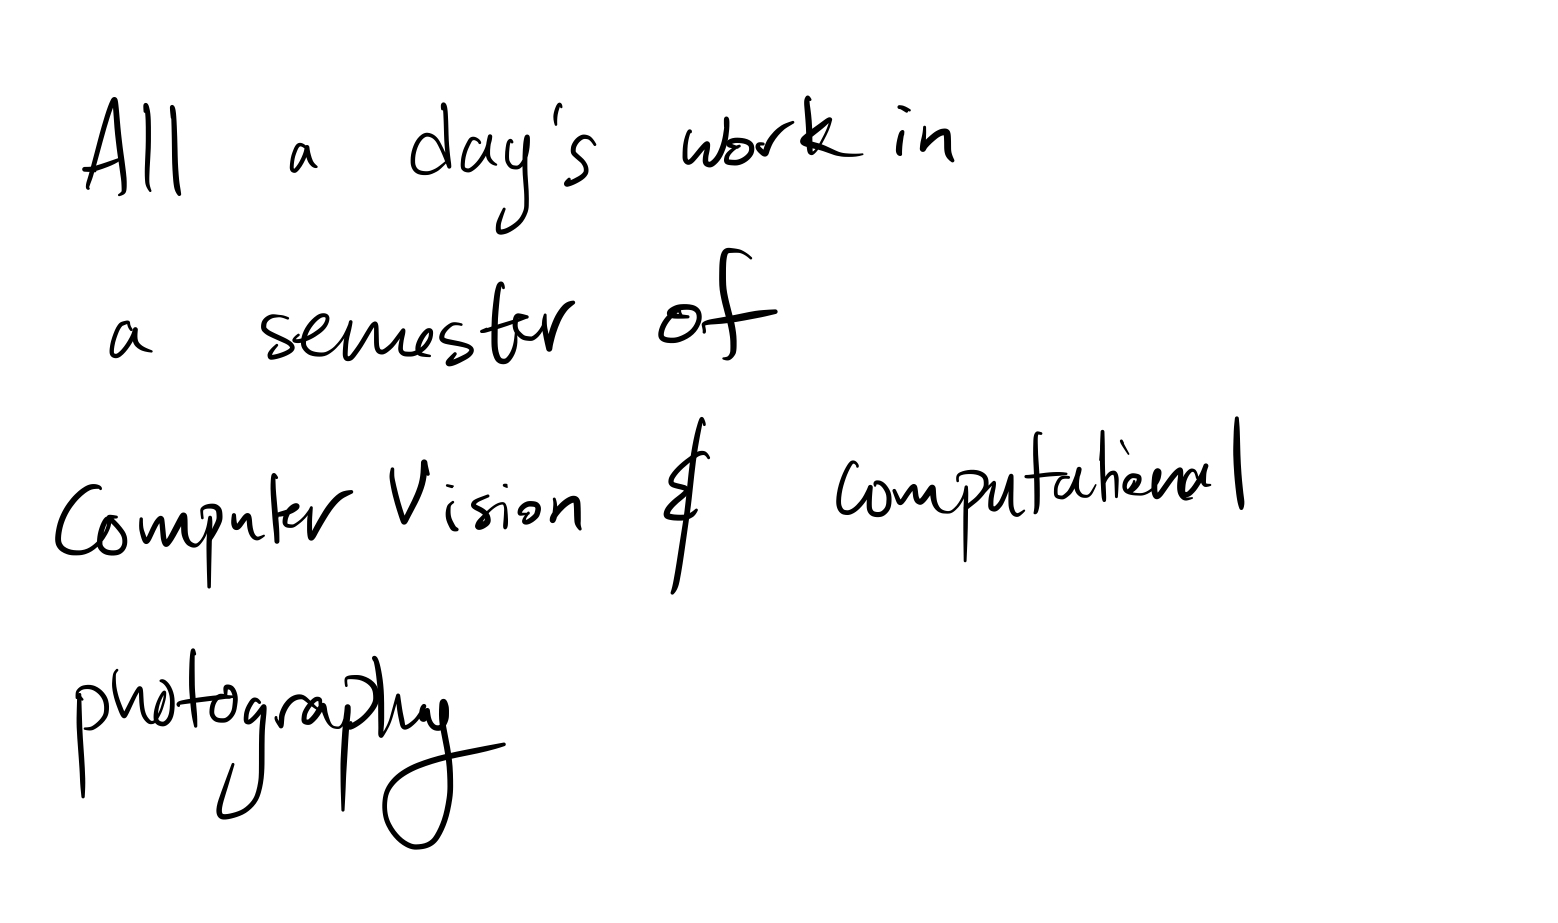 All a day's work in
a semester of
Computer Vision & computational
photography